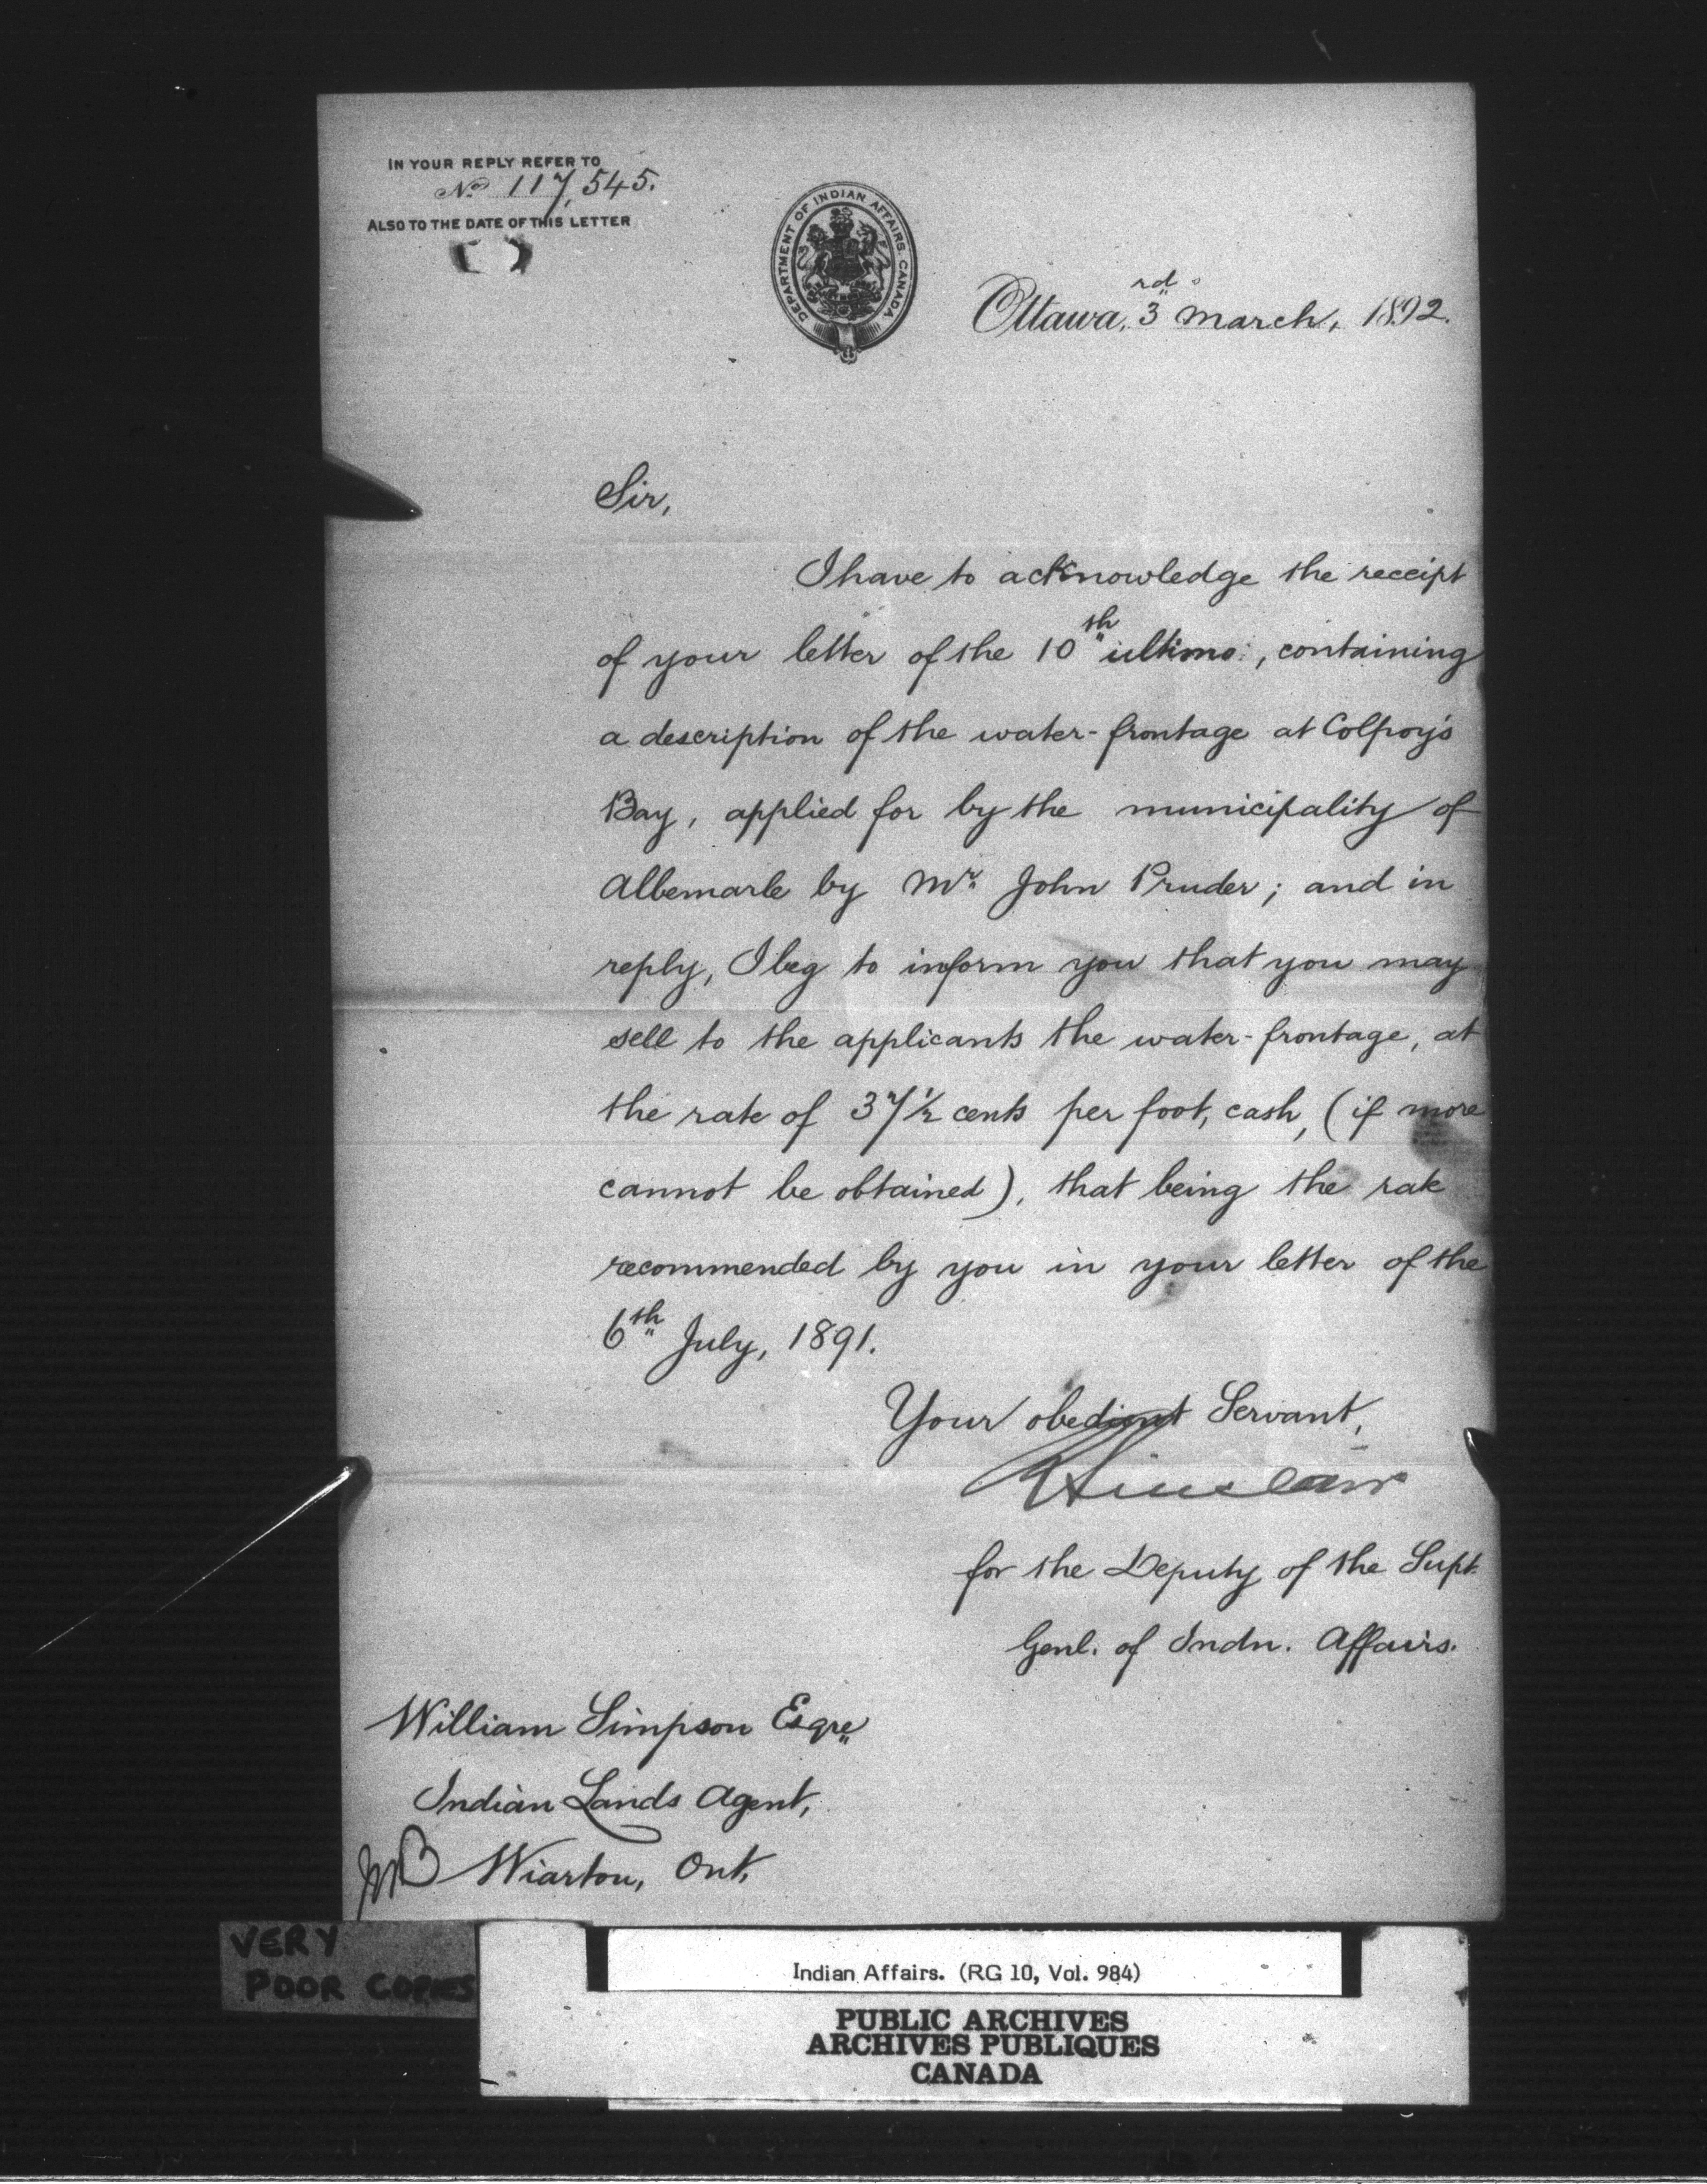 IN YOUR REPLY REFER TO
No 117,545.
ALSO TO THE DATE OF THIS LETTER
DEPARTMENT OF INDIAN AFFAIRS. CANADA
Ottawa, 3rd March, 1892.
Sir,
I have to acknowledge the receipt
of your letter of the 10th ultimo, containing
a description of the water-frontage at Colpoy's
Bay, applied for by the municipality of
Albemarle by Mr. John Pruder; and in
reply, I beg to inform you that you may
sell to the applicants the water-frontage, at
the rate of 37½ cents per foot, cash, (if more
cannot be obtained), that being the rate
recommended by you in your letter of the
6th July, 1891.
Your obedient Servant,
for the Deputy of the Supt.
Genl. of Indn. Affairs.
William Simpson Esqre
Indian Lands Agent,
Wiarton, Ont.
VERY
POOR COPIES
Indian Affairs. (RG 10, Vol. 984)
PUBLIC ARCHIVES
ARCHIVES PUBLIQUES
CANADA